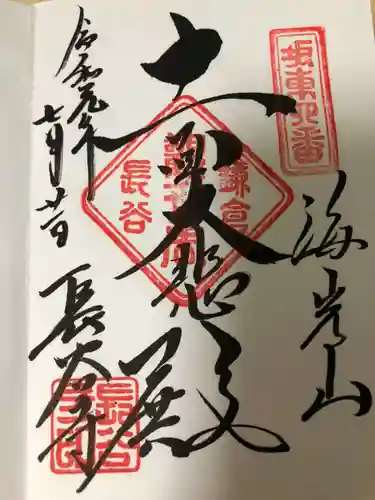 坂東四番
海光山
十一面大悲殿
鎌倉
長谷
令和元年
七月廿日
長谷寺